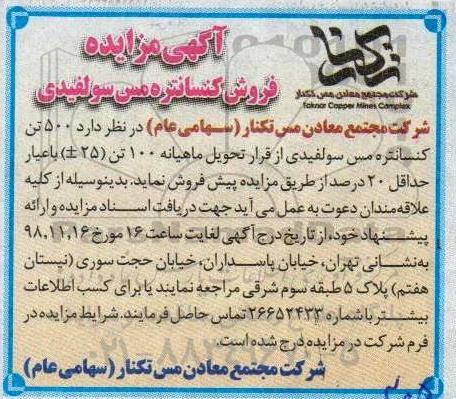 آگهی مزایده
فروش کنسانتره مس سولفیدی
تکنار
شرکت مجتمع معادن مس تکنار
Taknar Copper Mines Complex
شرکت مجتمع معادن مس تکنار (سهامی عام) در نظر دارد ۵۰۰ تن
کنسانتره مس سولفیدی از قرار تحویل ماهیانه ۱۰۰ تن (۲۵ ±) باعیار
حداقل ۲۰ درصد از طریق مزایده پیش فروش نماید. بدینوسیله از کلیه
علاقه‌مندان دعوت به عمل می آید جهت دریافت اسناد مزایده و ارائه
پیشنهاد خود، از تاریخ درج آگهی لغایت ساعت ۱۶ مورخ ۹۸,۱۱,۱۶
به نشانی تهران، خیابان پاسداران، خیابان حجت سوری (نیستان
هفتم) پلاک ۵ طبقه سوم شرقی مراجعه نمایند یا برای کسب اطلاعات
بیشتر با شماره ۲۶۶۵۲۴۳۳ تماس حاصل فرمایند. شرایط مزایده در
فرم شرکت در مزایده درج شده است.
شرکت مجتمع معادن مس تکنار (سهامی عام)